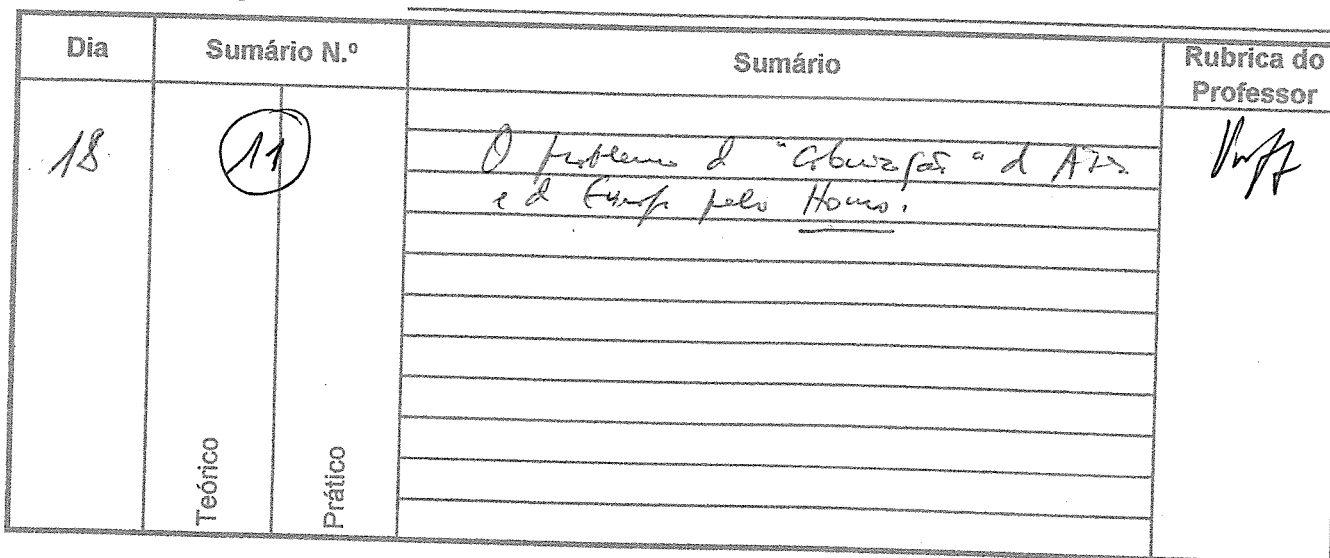 Dia
Sumário N.º
Sumário
Rubrica do
Professor
18
11
O problema d "
" d
e d Europa pelo Homo.
Teórico
Prático